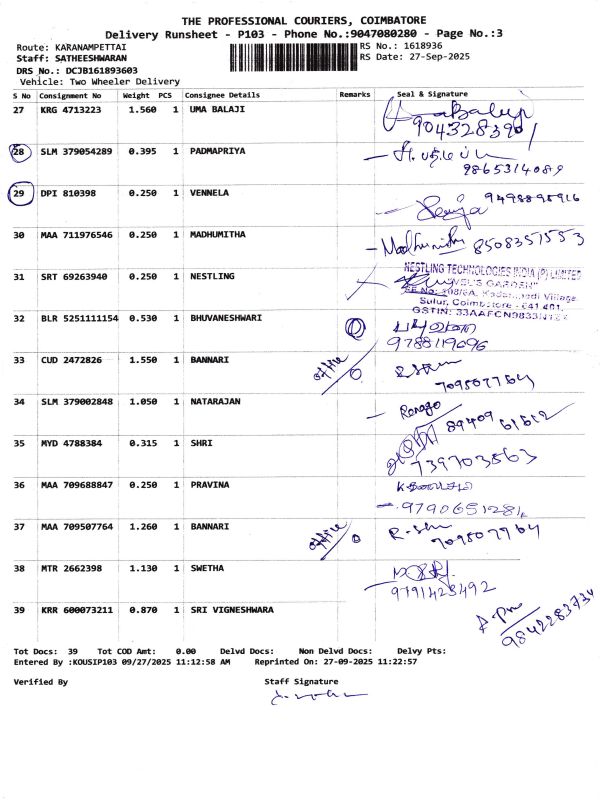 THE PROFESSIONAL COURIERS, COIMBATORE
Delivery Runsheet - P103 - Phone No.:9047080280 - Page No.:3
Route: KARANAMPETTAI RS No.: 1618936
Staff: SATHEESHWARAN RS Date: 27-Sep-2025
DRS No.: DCJB161893603
Vehicle: Two Wheeler Delivery
S No Consignment No Weight PCS Consignee Details Remarks Seal & Signature
27 KRG 4713223 1.560 1 UMA BALAJI
9043283901
28 SLM 379054289 0.395 1 PADMAPRIYA
9865314089
29 DPI 810398 0.250 1 VENNELA
9498898916
30 MAA 711976546 0.250 1 MADHUMITHA Madhumitha 8508357553
31 SRT 69263940 0.250 1 NESTLING
NESTLING TECHNOLOGIES INDIA (P) LIMITED
"VEL'S GARDEN"
Sulur, Coimbatore - 641 401.
32 BLR 5251111154 0.530 1 BHUVANESHWARI
9788119696
33 CUD 2472826 1.550 1 BANNARI office
7095077964
34 SLM 379002848 1.050 1 NATARAJAN 89409 61612
35 MYD 4788384 0.315 1 SHRI
739703563
36 MAA 709688847 0.250 1 PRAVINA
9790651281
37 MAA 709507764 1.260 1 BANNARI office
7095077964
38 MTR 2662398 1.130 1 SWETHA
9791428492
39 KRR 600073211 0.870 1 SRI VIGNESHWARA
9842283734
Tot Docs: 39 Tot COD Amt: 0.00 Delvd Docs: Non Delvd Docs: Delvy Pts:
Entered By :KOUSIP103 09/27/2025 11:12:58 AM Reprinted On: 27-09-2025 11:22:57
Verified By Staff Signature